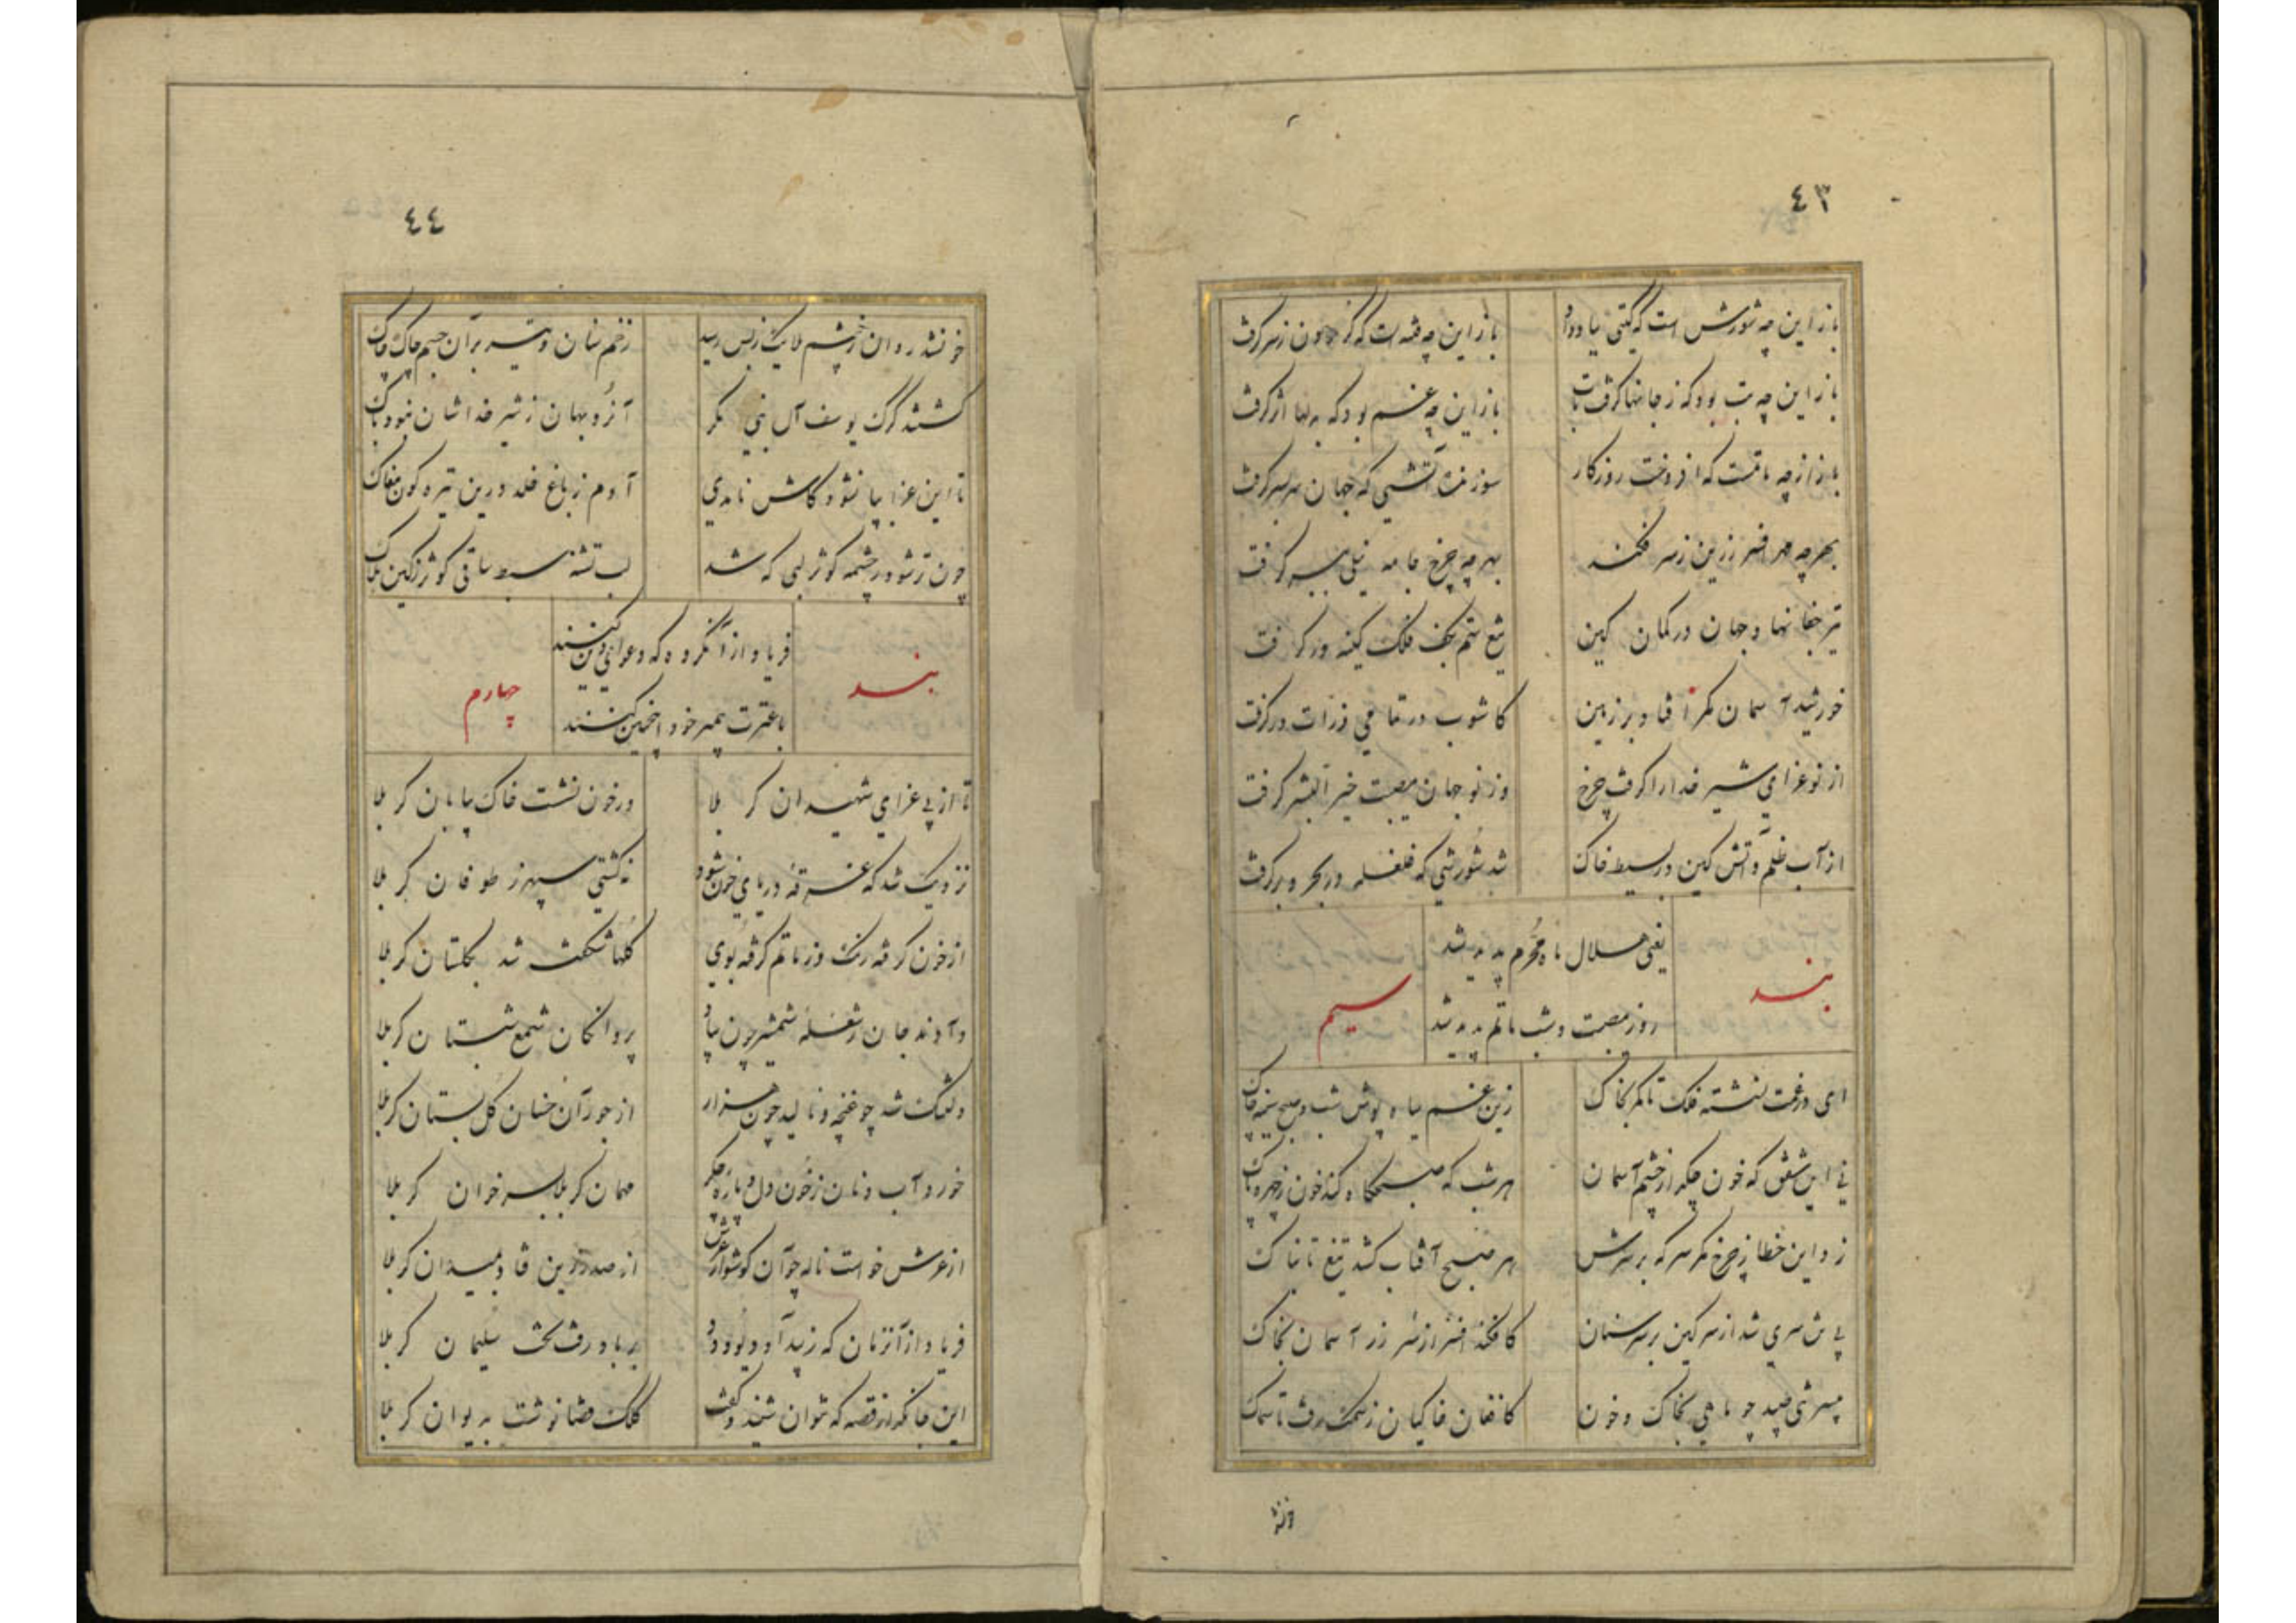 ٤٣
باز این چه شورش است که گیتی بیاد داد
باز این چه فتنه است که گردون ز سر گرفت
باز این چه تب بود که ز جانها گرفت تاب
باز این چه غم بود که بدلها اثر گرفت
باز از چه ماتمست که افروخت روزگار
سوزنده آتشی که جهان سر بسر گرفت
بهر چه مهر افسر زرین ز سر فکند
بهر چه چرخ جامه نیلی ببر گرفت
تیر جفا نهاد جهان در کمان کین
تیغ ستم بکف فلک کینه ور گرفت
خورشید آسمان مگر افتاد بر زمین
کاشوب در تمامی ذرات در گرفت
از نو عزای شیر خدا را گرفت چرخ
وز نو جهان مصیبت خیر البشر گرفت
از آب ظلم و آتش کین در بسیط خاک
شد شورشی که غلغله در بحر و بر گرفت
بند
یعنی هلال ماه محرم پدید شد
روز مصیبت و شب ماتم پدید شد
سیم
ای در غمت نشسته فلک تا کمر بخاک
زین غم سیاه پوش شب و صبح سینه چاک
نی این شفق که خون چکد از چشم آسمان
هر شب که صبحگاه کند خون ز چهره پاک
زد این خطا ز چرخ مگر سر که بر سرش
هر صبح آفتاب کشد تیغ تابناک
بی تن سری شد از سر کین بر سر سنان
کافکند افسر از سر زر آسمان بخاک
تن طپید چو ماهی بخاک و خون
کافغان خاکیان ز سمک رفت تا سماک
٤٤
خونشد روان ز چشم ملایک ز بس رسید
زخم سنان و تیر بر آن جسم چاک چاک
کشتند گرگ یوسف آل نبی مگر
آنروبهان ز شیر خداشان نبود باک
تا این عزا بپا نشود کاش نامدی
آدم ز باغ خلد درین تیره گون مغاک
چون تر شود ز چشمه کوثر لبی که شد
لب تشنه سبط ساقی کوثر ز کین هلاک
بند
فریاد از آنگروه که دعوای دین کنند
با عترت پیمبر خود اینچنین کنند
چهارم
تا از پی عزای شهیدان کربلا
در خون نشست خاک بیابان کربلا
نزدیک شد که غرقه دریای خون شود
نه کشتی سپهر ز طوفان کربلا
از خون گرفته رنگ و ز ماتم گرفته بوی
گلها شکفته شد بگلستان کربلا
دادند جان ز شعله شمشیر چون
پروانگان شمع شبستان کربلا
دلتنگ شد چو غنچه و نالید چون هزار
از جور آن خسان گل بستان کربلا
خورد آب و نان ز خون دل و پاره جگر
مهمان کربلا بسر خوان کربلا
از عرش خواست ناله چو آن گوشوار عرش
از صدر زین فتاد بمیدان کربلا
فریاد از آنزمان که ز بیداد دیو و دد
بر باد رفت تخت سلیمان کربلا
این جانگداز قصه که نتوان شنید و گفت
کلک قضا نوشت بدیوان کربلا